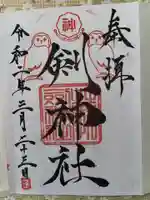 奉拝
神
剣神社
令和二年二月二十三日